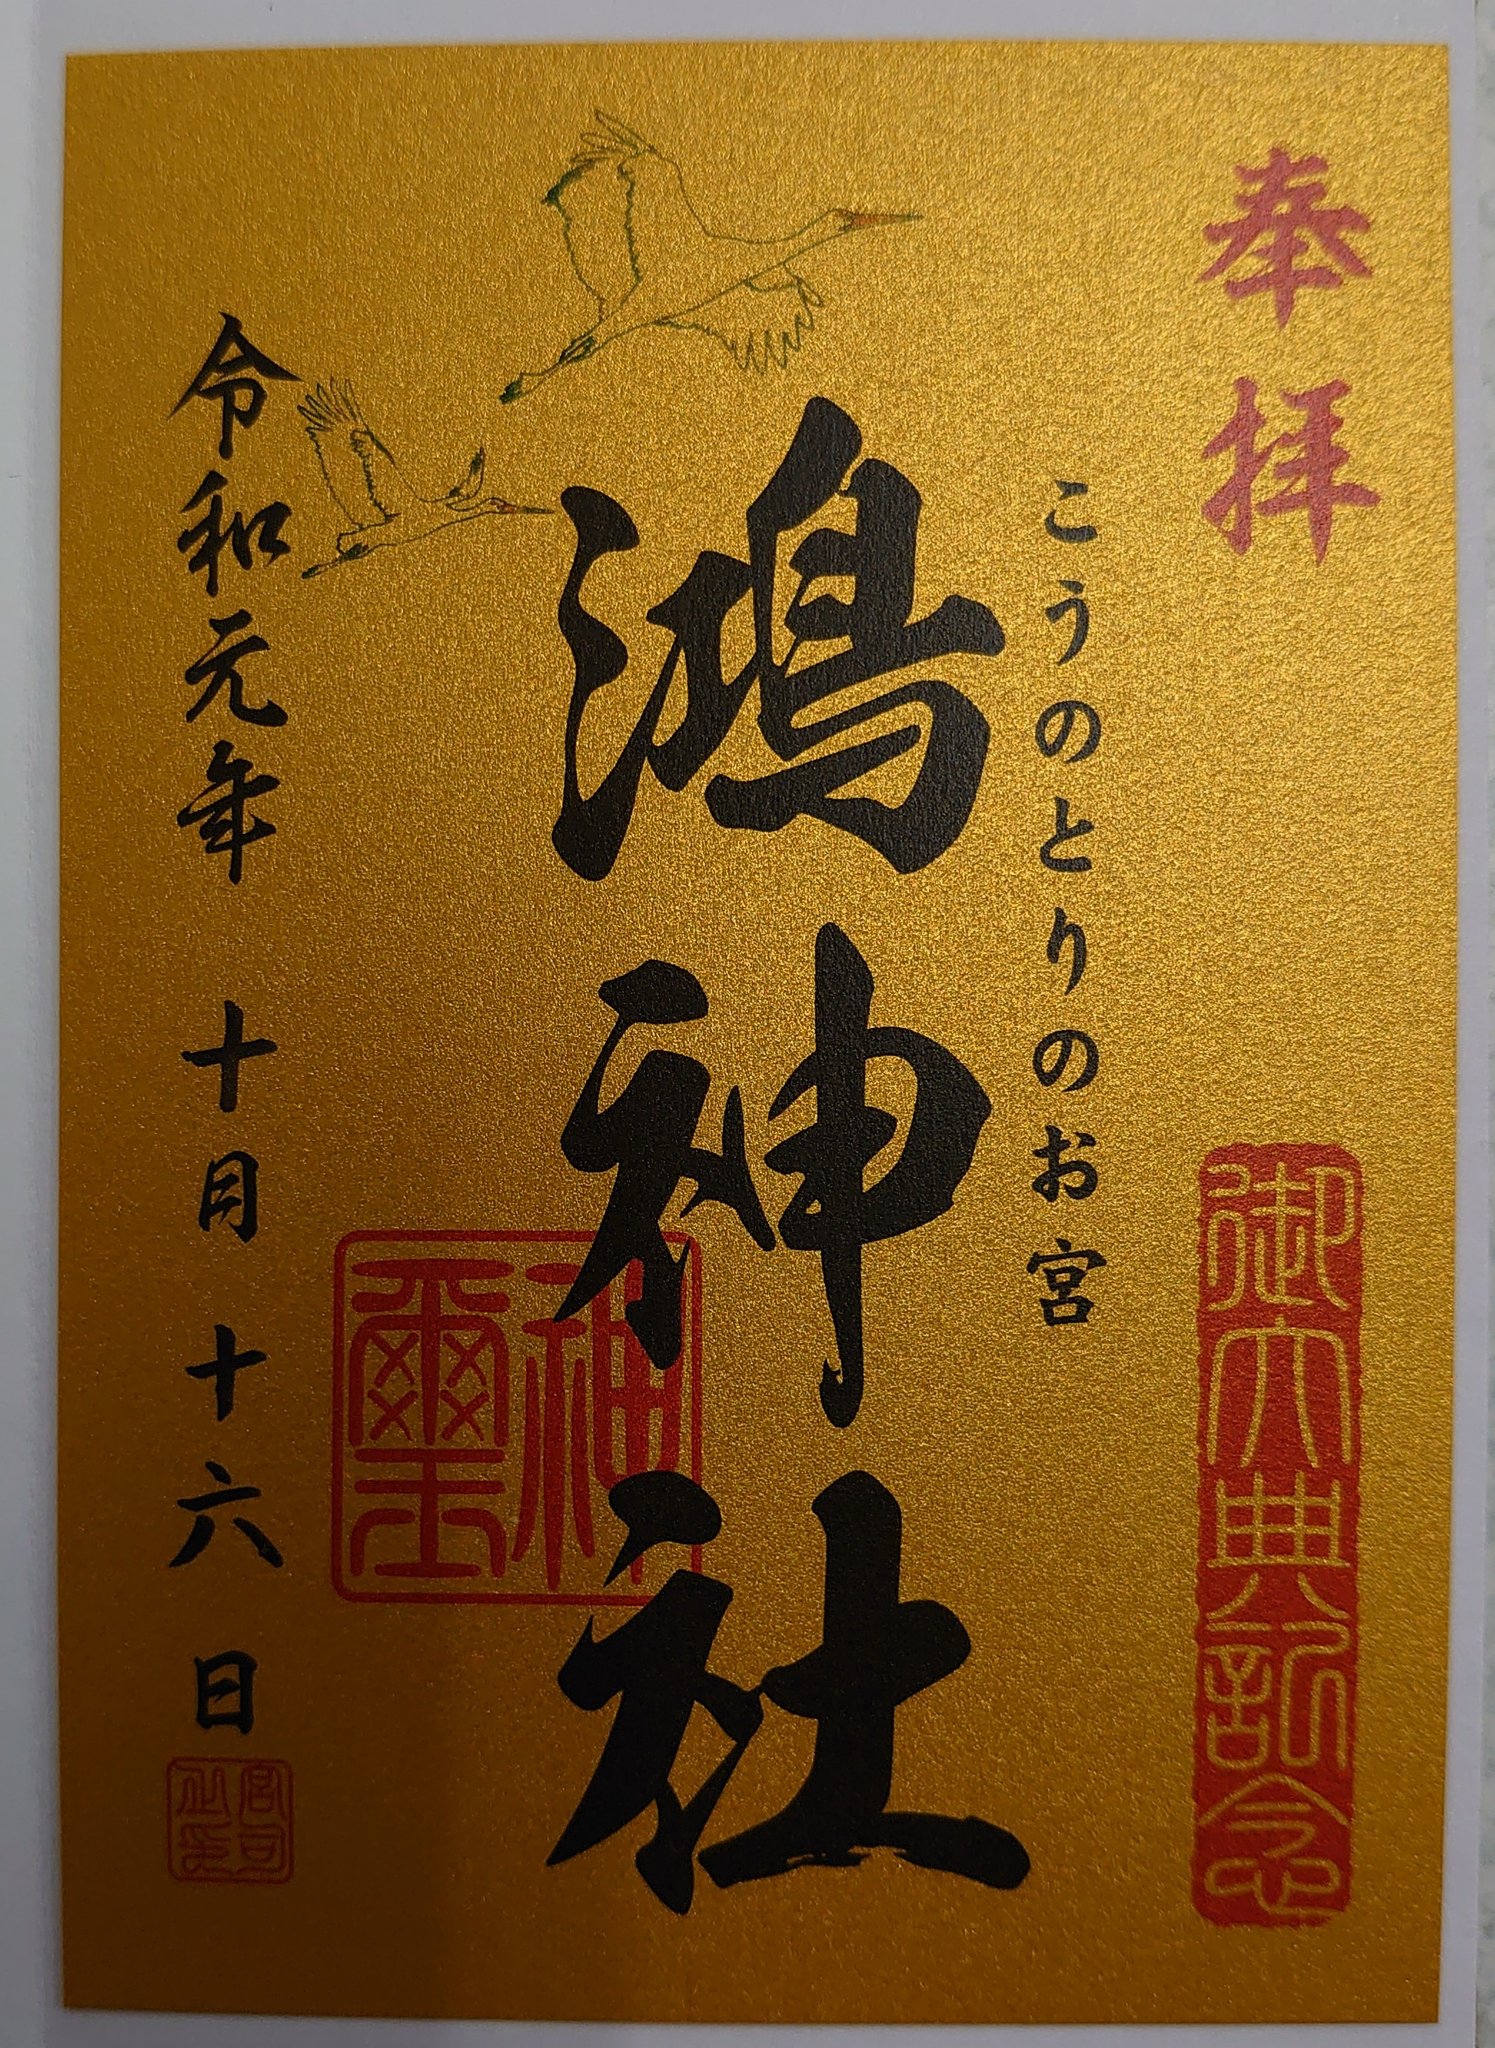 奉拝
御大典記念
こうのとりのお宮
鴻神社
神璽
令和元年 十月十六日